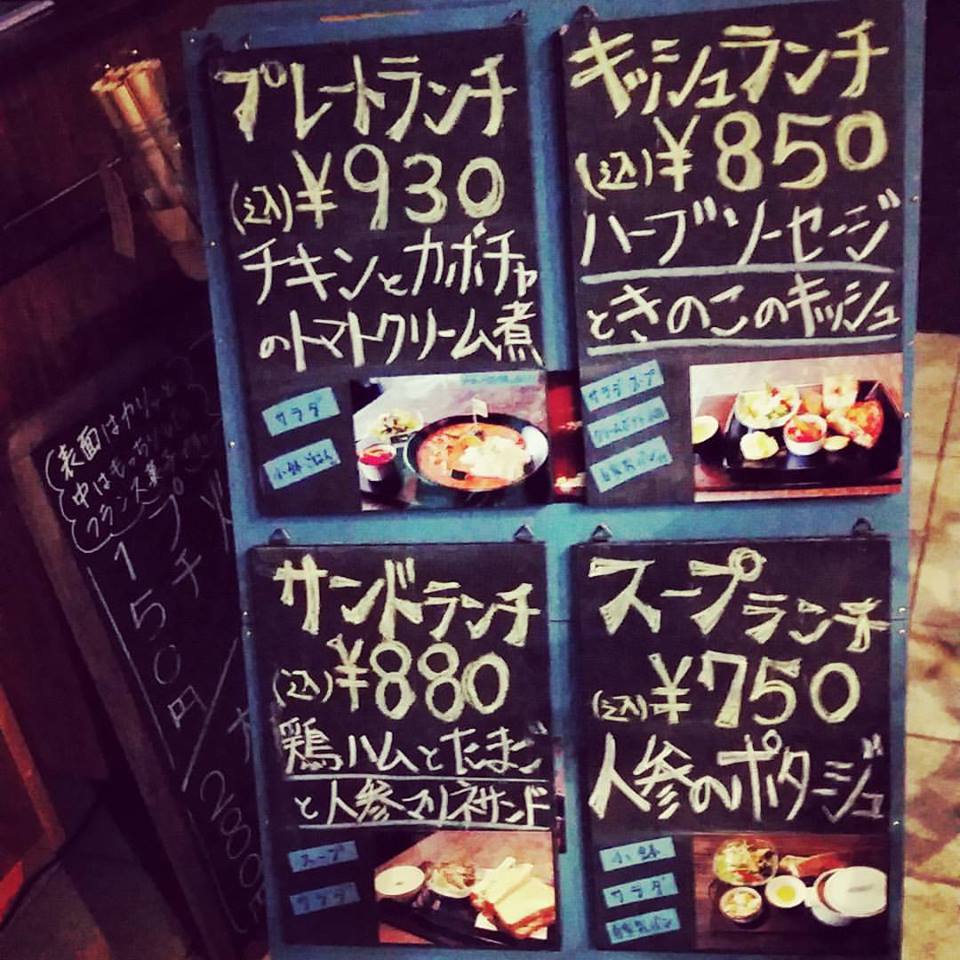 プレートランチ
(込)¥930
チキンとカボチャ
のトマトクリーム煮
サラダ
小鉢 ごはん
キッシュランチ
(込)¥850
ハーブソーセージ
ときのこのキッシュ
サラダ スープ
自家製パン
サンドランチ
(込)¥880
鶏ハムとたまご
と人参マリネサンド
スープ
サラダ
スープランチ
(込)¥750
人参のポタージュ
小鉢
サラダ
自家製パン
表面はカリッ
中はもっち
フランス
プチ
150円/
2000円